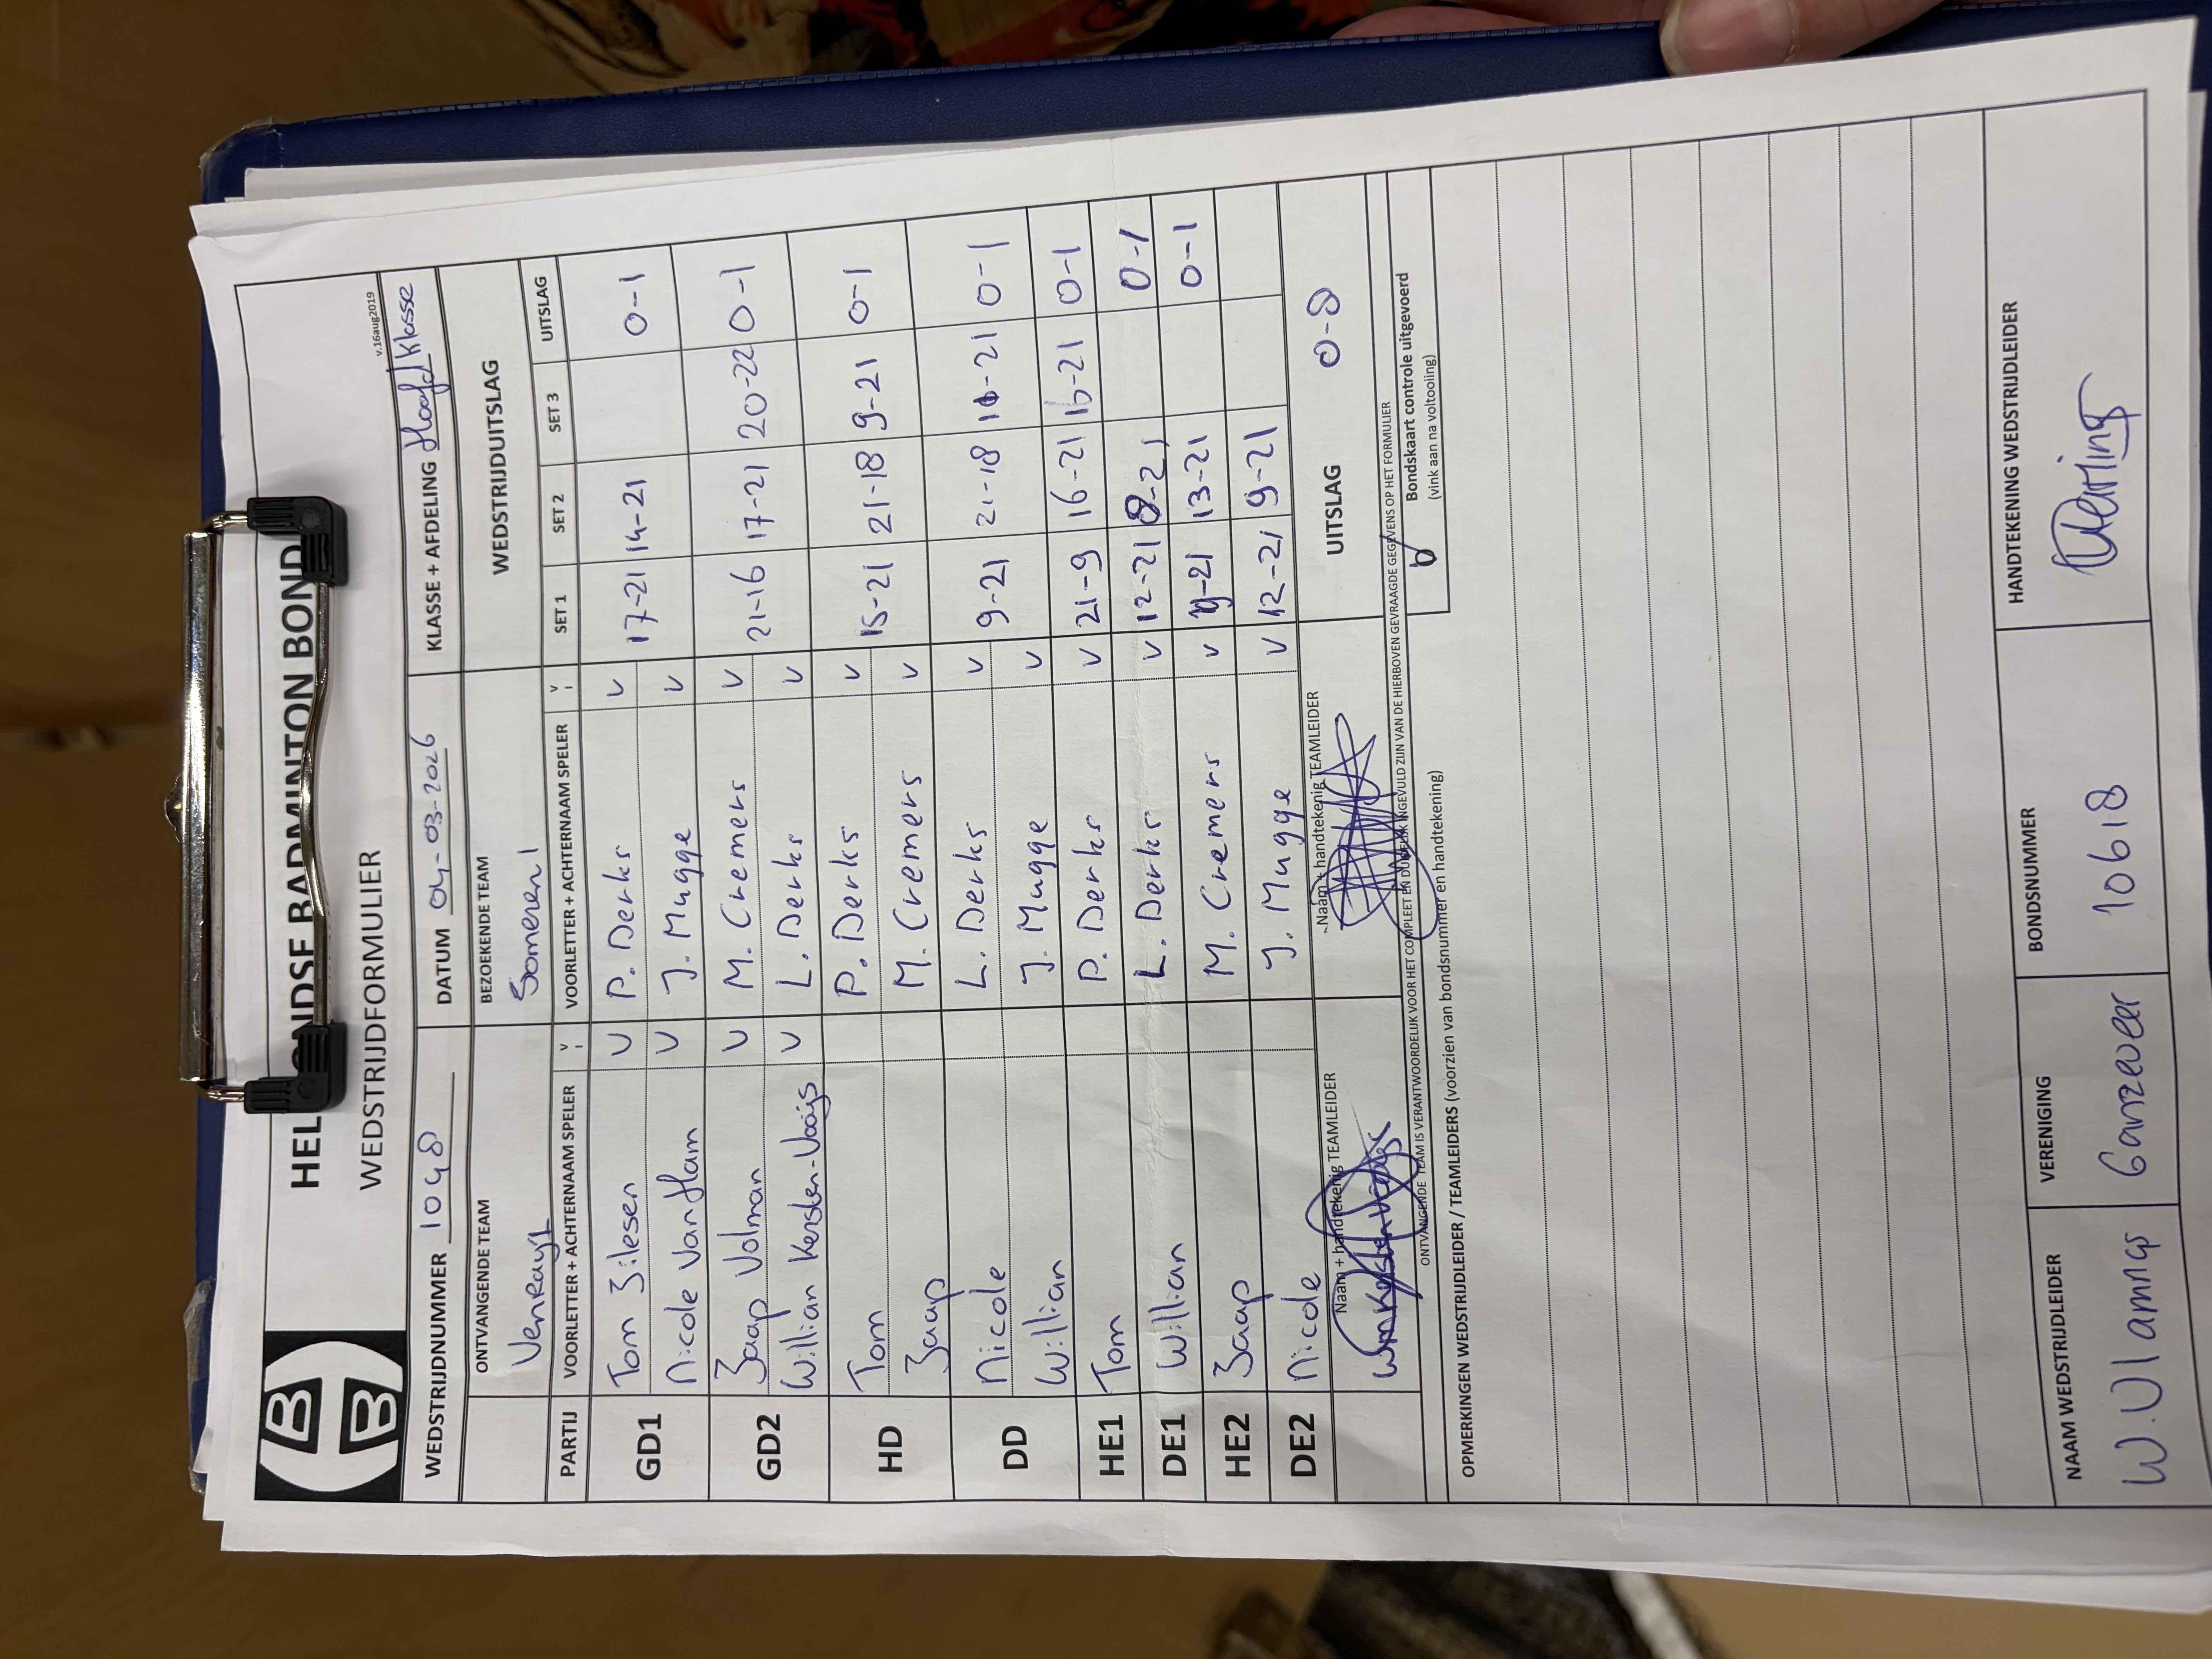 HB B
HEL ONDSE BADMINTON BOND
WEDSTRIJDFORMULIER
v.16aug2019
WEDSTRIJDNUMMER 1048 DATUM 04-03-2026 KLASSE + AFDELING Hoofd klasse
ONTVANGENDE TEAM BEZOEKENDE TEAM WEDSTRIJDUITSLAG
Venray 1 Someren 1
PARTIJ VOORLETTER + ACHTERNAAM SPELER V VOORLETTER + ACHTERNAAM SPELER V SET 1 SET 2 SET 3 UITSLAG
GD1 Tom Jilesen V P. Derks V 17-21 14-21 0-1
Nicole van Ham V J. Mugge V
GD2 Jaap Volman V M. Cremers V 21-16 17-21 20-22 0-1
Willian Kersten-Vooijs V L. Derks V
HD Tom P. Derks V 15-21 21-18 9-21 0-1
Jaap M. Cremers V
DD Nicole L. Derks V 9-21 21-18 16-21 0-1
Willian J. Mugge V
HE1 Tom P. Derks V 21-9 16-21 16-21 0-1
DE1 Willian L. Derks V 12-21 8-21 0-1
HE2 Jaap M. Cremers V 19-21 13-21 0-1
DE2 Nicole J. Mugge V 12-21 9-21
Naam + handtekenig TEAMLEIDER Naam + handtekenig TEAMLEIDER UITSLAG 0-8
ONTVANGENDE TEAM IS VERANTWOORDELIJK VOOR HET COMPLEET EN DUIDELIJK INGEVULD ZIJN VAN DE HIERBOVEN GEVRAAGDE GEGEVENS OP HET FORMULIER
Bondskaart controle uitgevoerd
(vink aan na voltooiing)
OPMERKINGEN WEDSTRIJDLEIDER / TEAMLEIDERS (voorzien van bondsnummer en handtekening)
NAAM WEDSTRIJDLEIDER VERENIGING BONDSNUMMER HANDTEKENING WEDSTRIJDLEIDER
W. Vlamings Ganzeveer 10618